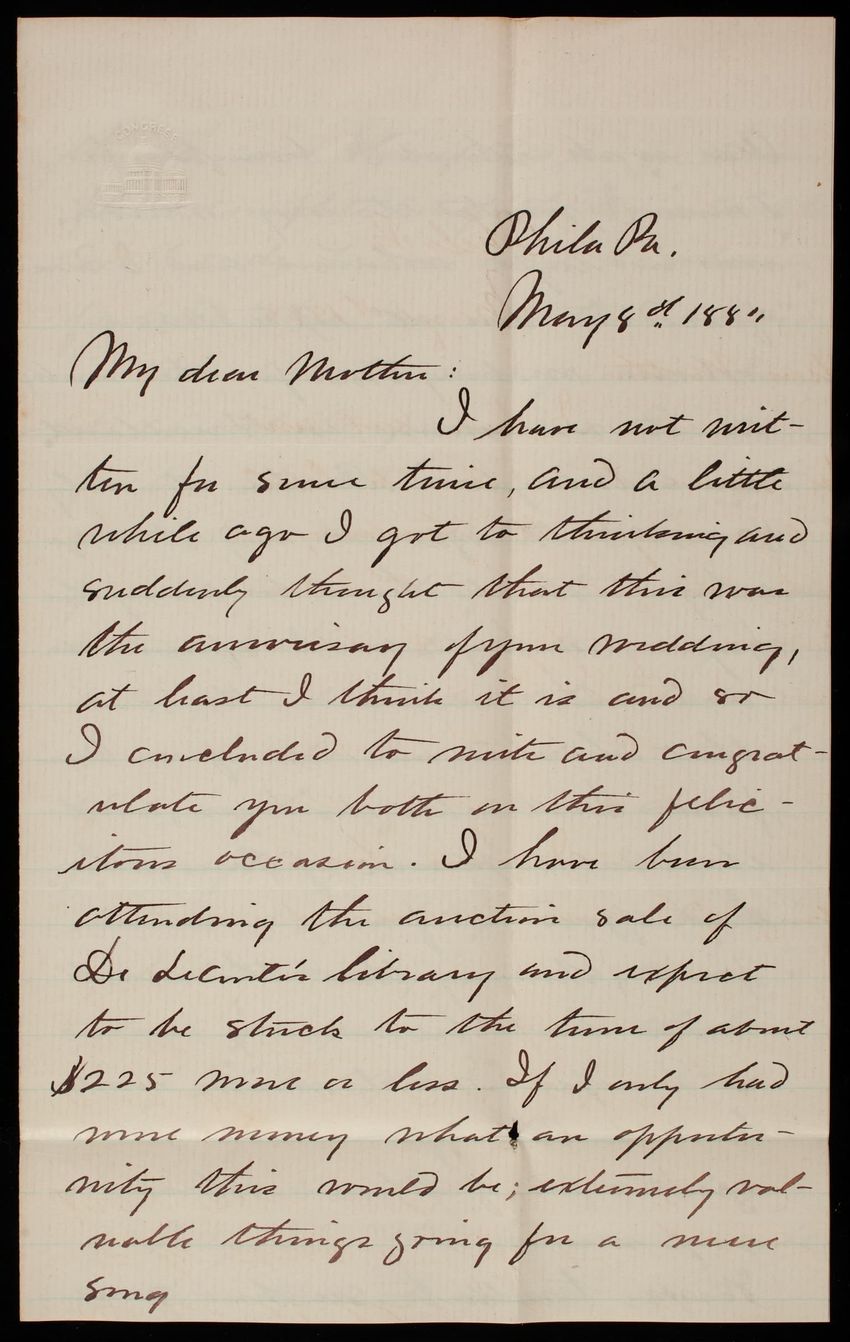 CONGRESS
Phila Pa.
May 8d 1880,
My dear Mother:
I have not writ-
ten for some time, and a little
while ago I got to thinking and
suddenly thought that this was
the anniversary of your wedding,
at least I think it is and so
I concluded to write and congrat-
ulate you both on this felic-
itous occasion. I have been
attending the auction sale of
library and expect
to be stuck to the tune of about
$225 more or less. If I only had
more money what an opportu-
nity this would be; extremely val-
uable things going for a mere
song